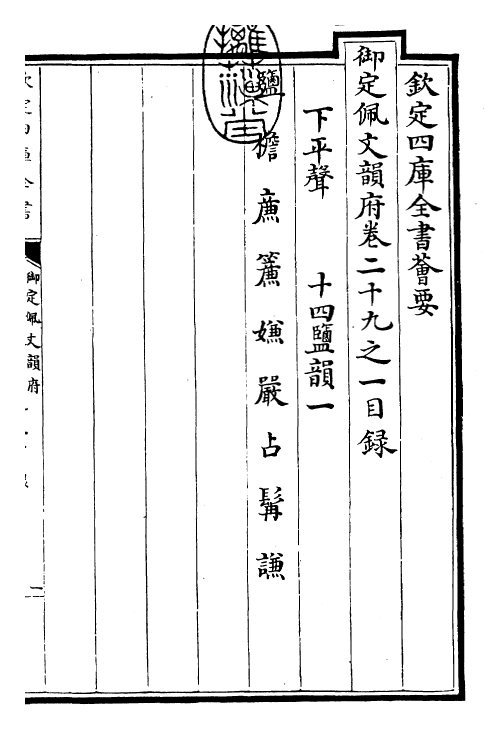 欽定四庫全書薈要
御定佩文韻府卷二十九之一目録
下平聲　十四鹽韻一
鹽檐廉簾嫌嚴占髯謙
御定佩文韻府